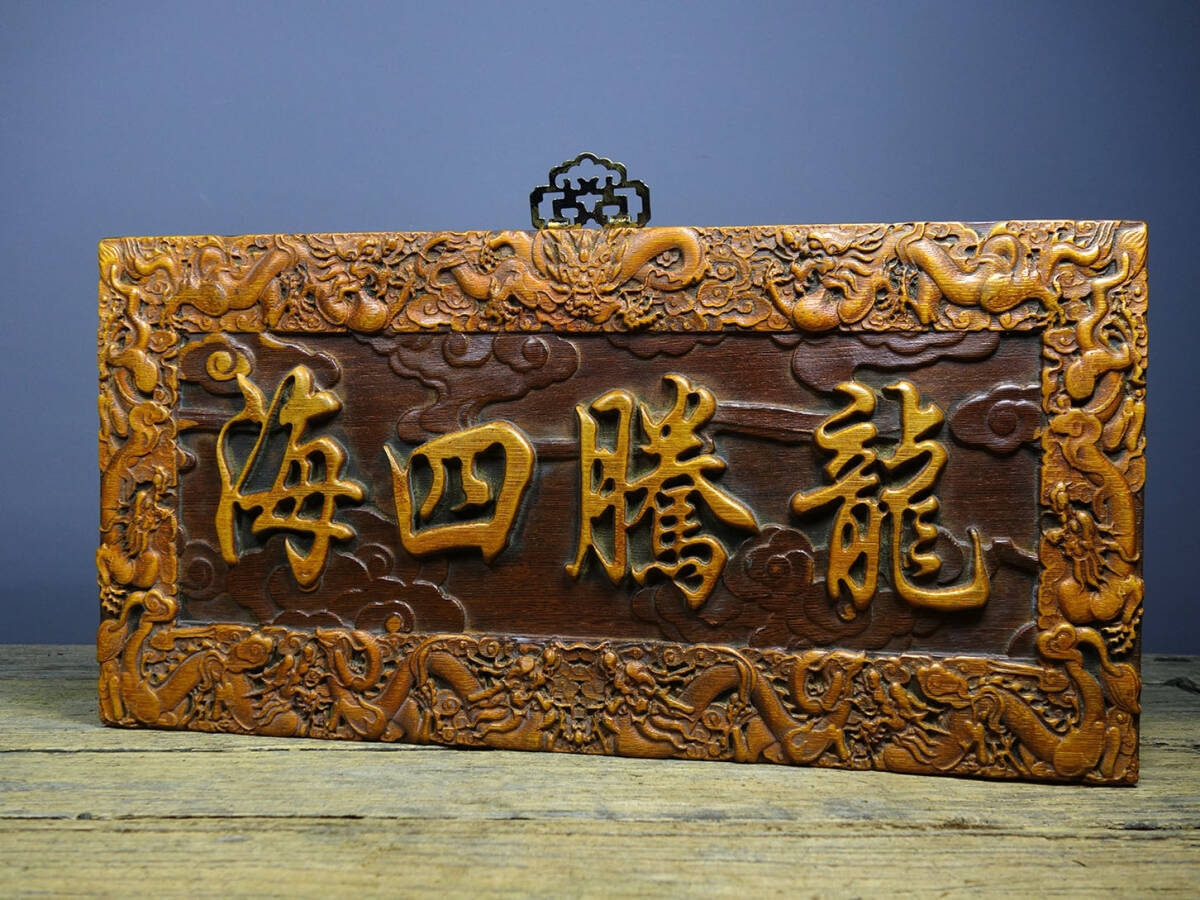 龍騰四海